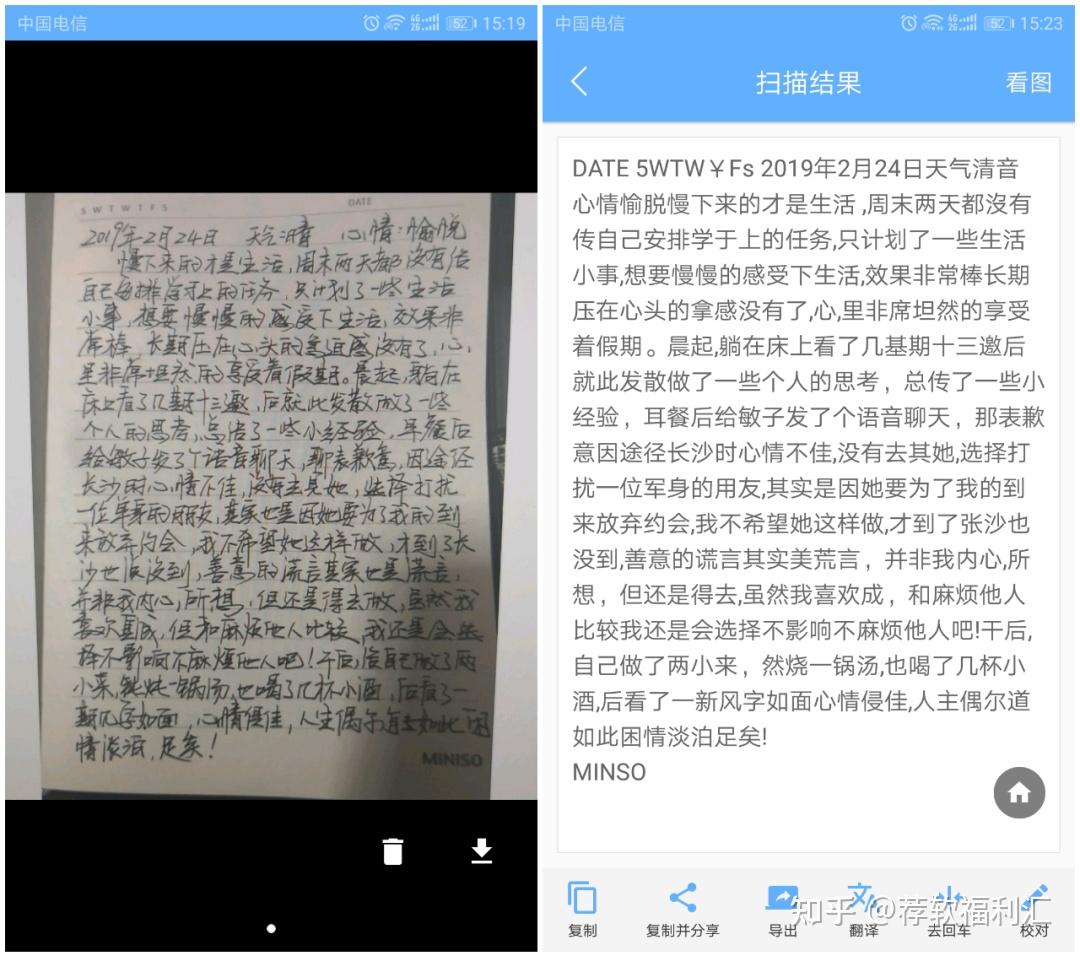 中国电信
4G 2G 52 15:19
SMTWTFS DATE
2019年2月24日 天气:晴 心情:愉脱
慢下来的才是生活,周末两天都没有给
自己安排学习上的任务,只计划了一些生活
小事,想要慢慢的感受下生活,效果非
常棒,长期压在心头的焦迫感没有了,心
里非常坦然的享受着假期。晨起,躺在
床上看了几期十三邀,后就此发散做了一些
个人的思考,总结了一些小经验,早餐后
给敏子发了个语音聊天,聊表歉意,因途径
长沙时心情不佳,没有去见她,选择打扰
一位单身的朋友,其实也是因她要为了我的到
来放弃约会,我不希望她这样做,才到了长
沙也说没到,善意的谎言其实也是谎言,
并非我内心所想,但还是得去做,虽然我
喜欢直成,但和麻烦他人比较,我还是会选
择不影响不麻烦他人吧!午后,给自己做了两
小菜,炖烧一锅汤,也喝了几杯小酒,后看了一
期见字如面,心情侵佳,人生偶尔道如此困
情淡泊,足矣!
MINISO
中国电信
4G 2G 52 15:23
扫描结果
看图
DATE 5WTW￥Fs 2019年2月24日天气清音
心情愉脱慢下来的才是生活 ,周末两天都沒有
传自己安排学于上的任务,只计划了一些生活
小事,想要慢慢的感受下生活,效果非常棒长期
压在心头的拿感没有了,心,里非席坦然的享受
着假期。晨起,躺在床上看了几基期十三邀后
就此发散做了一些个人的思考，总传了一些小
经验，耳餐后给敏子发了个语音聊天，那表歉
意因途径长沙时心情不佳,没有去其她,选择打
扰一位军身的用友,其实是因她要为了我的到
来放弃约会,我不希望她这样做,才到了张沙也
没到,善意的谎言其实美荒言，并非我内心,所
想，但还是得去,虽然我喜欢成，和麻烦他人
比较我还是会选择不影响不麻烦他人吧!干后,
自己做了两小来，然烧一锅汤,也喝了几杯小
酒,后看了一新风字如面心情侵佳,人主偶尔道
如此困情淡泊足矣!
MINSO
复制
复制并分享
导出
翻译
去回车
校对
知乎 @荐软福利汇